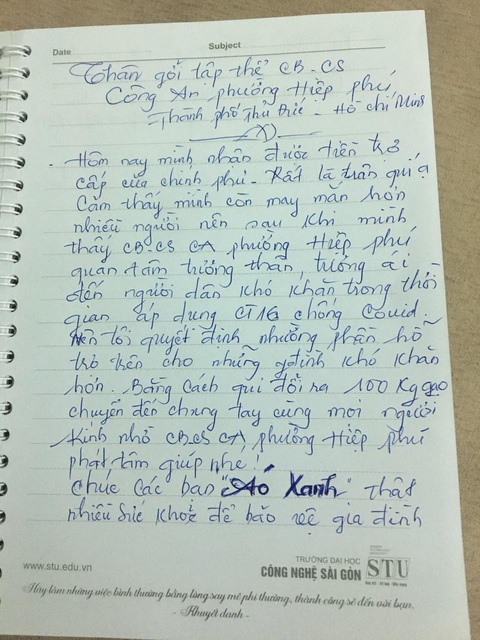 Date
Subject
Thân gởi tập thể CB-CS
Công An phường Hiệp phú
Thành phố Thủ Đức - Hồ Chí Minh
- Hôm nay mình nhận được tiền trợ
cấp của chính phủ. Rất là trân quí ạ
Cảm thấy mình còn may mắn hơn
nhiều người nên sau khi mình
thấy CB-CS CA phường Hiệp phú
quan tâm tương thân, tương ái
đến người dân khó khăn trong thời
gian áp dụng CT16 chống Covid.
Nên tôi quyết định nhường phần hỗ
trợ trên cho những gđình khó khăn
hơn. Bằng cách qui đổi ra 100 Kg gạo
chuyển đến chung tay cùng mọi người
Kính nhờ CB.CS CA, phường Hiệp phú
phát tâm giúp nhe!
Chúc các bạn "Áo Xanh" thật
nhiều sức khoẻ để bảo vệ gia đình
www.stu.edu.vn
TRƯỜNG ĐẠI HỌC
CÔNG NGHỆ SÀI GÒN
STU
Hãy làm những việc bình thường bằng lòng say mê phi thường, thành công sẽ đến với bạn.
- Khuyết danh -